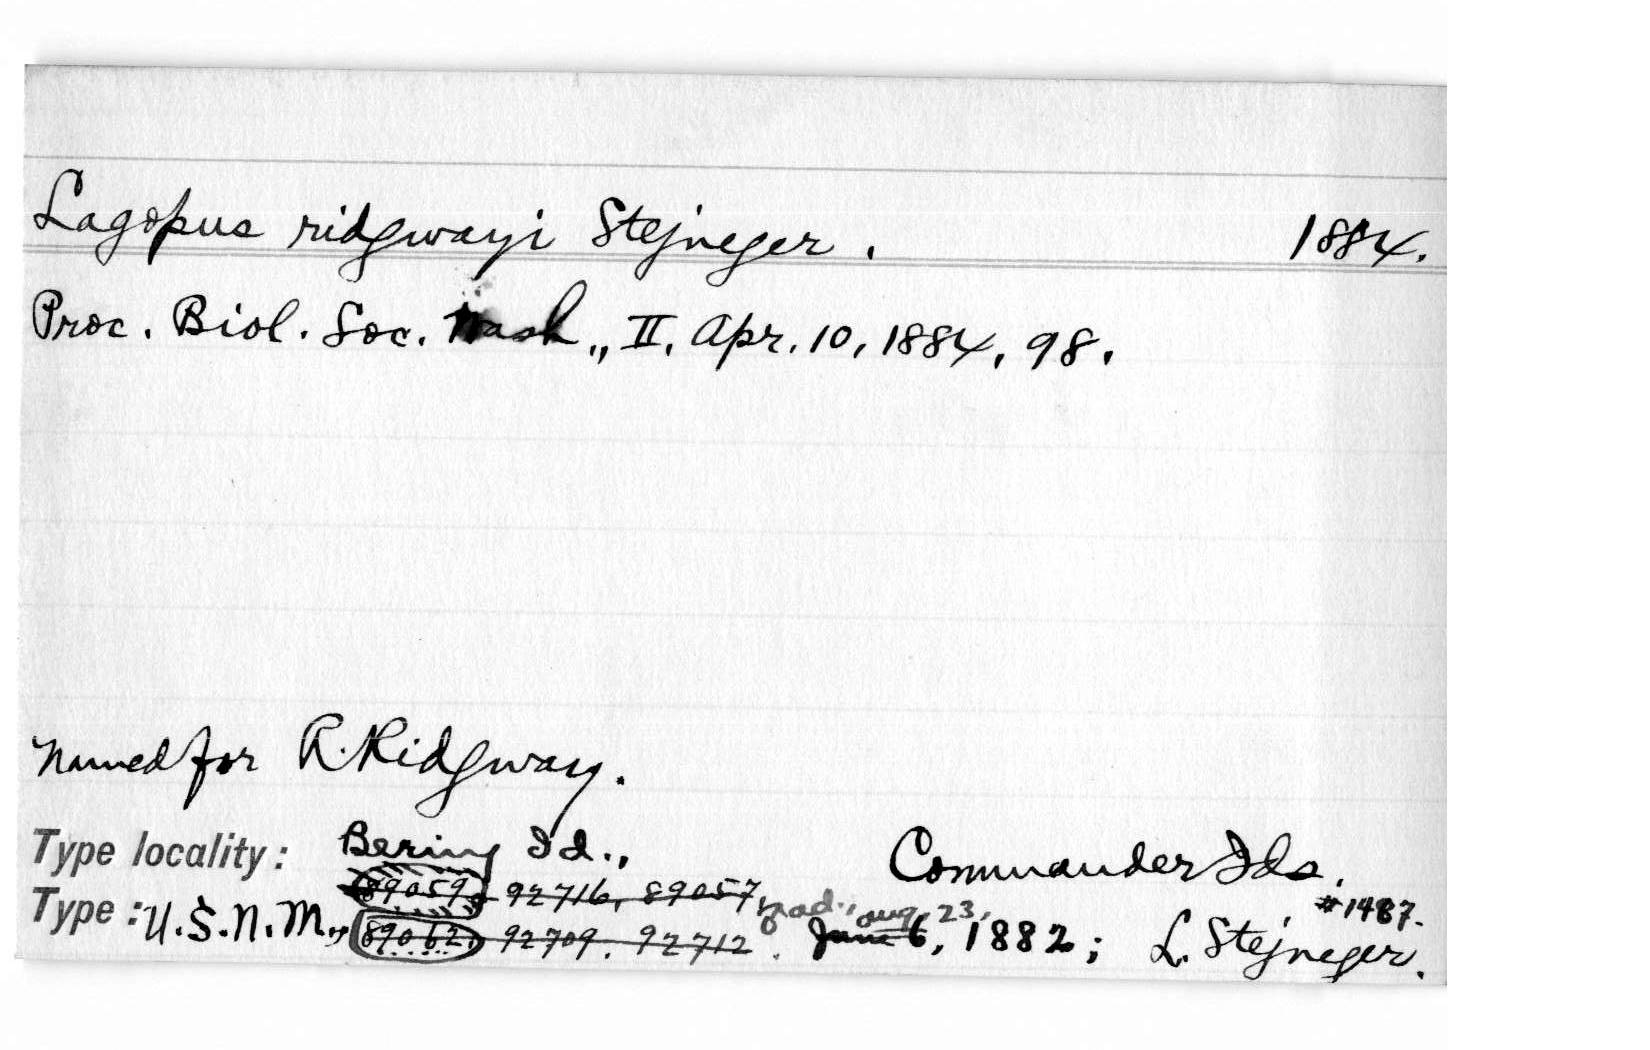 Lagopus ridgwayi Stejneger. 1884.
Proc. Biol. Soc. Wash., II, Apr. 10, 1884, 98.
Named for R. Ridgway.
Type locality: Bering Id., Commander Ids.
89059, 92716, 89057, ad., Aug. 23, #1487.
Type: U.S.N.M., 89062, 92709, 92712. June 6, 1882; L. Stejneger.